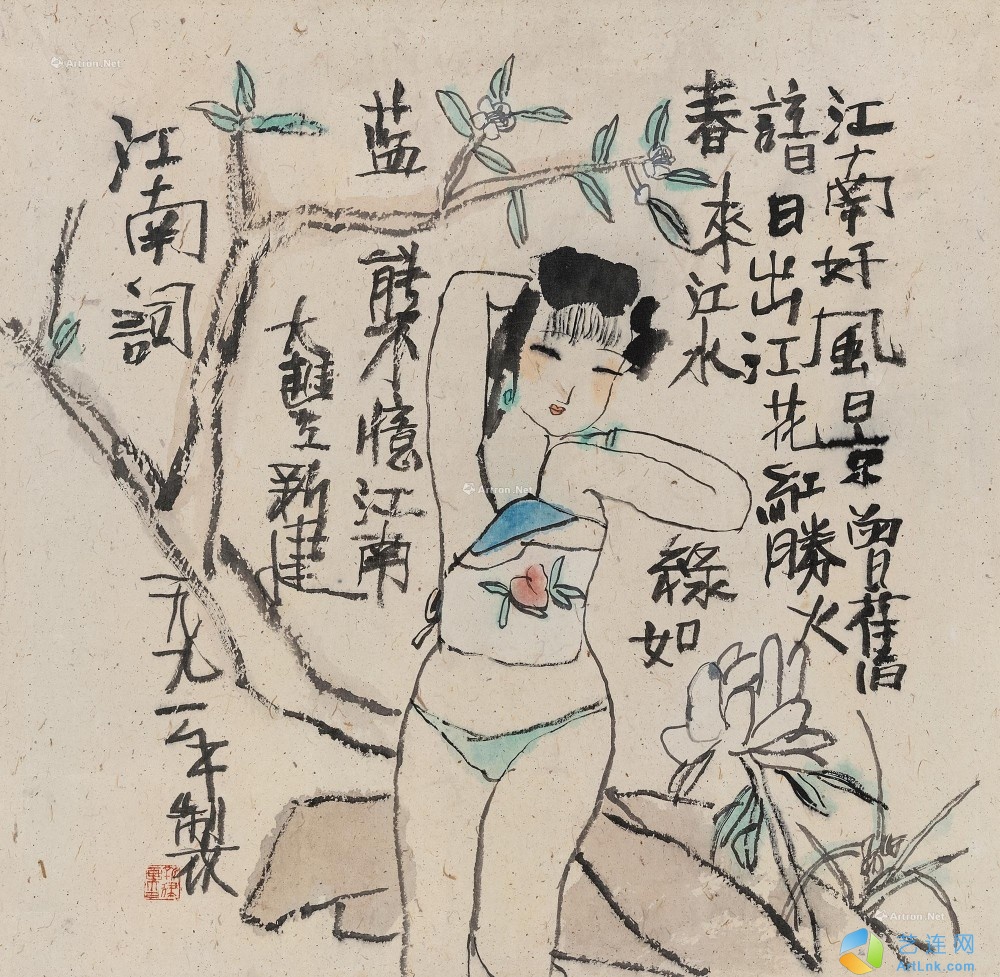 江南好風景曾舊
諳日出江花紅勝火
春來江水
綠如
蓝
能不憶江南
大豐朱新建
江南詞
一九九一年製
Artron.Net
Artron.Net
Artron.Net
艺连网
ArtLnk.com